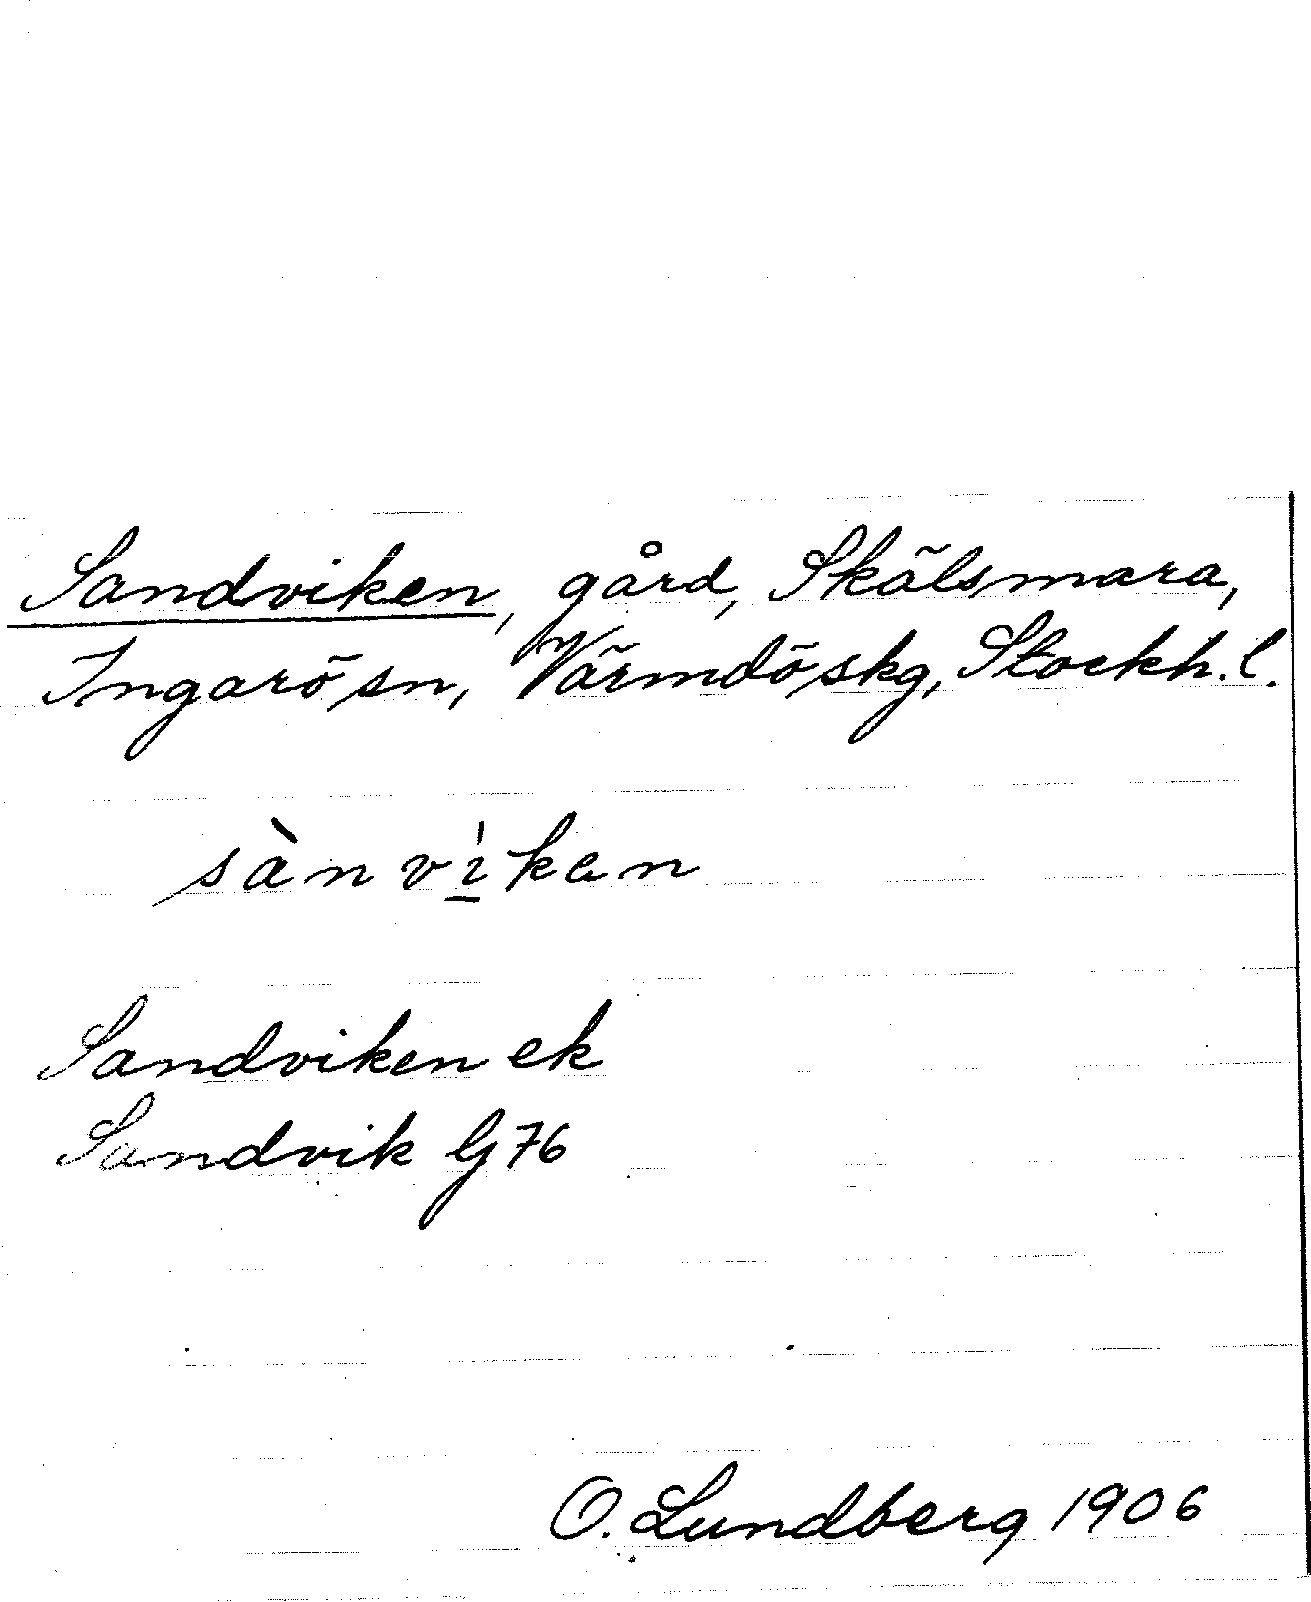 Sandviken, gård, Skälsmara,
Ingarö sn, Värmdö skg, Stockh. l.
sànvìken
Sandviken ek
Sandvik G 76
O. Lundberg 1906